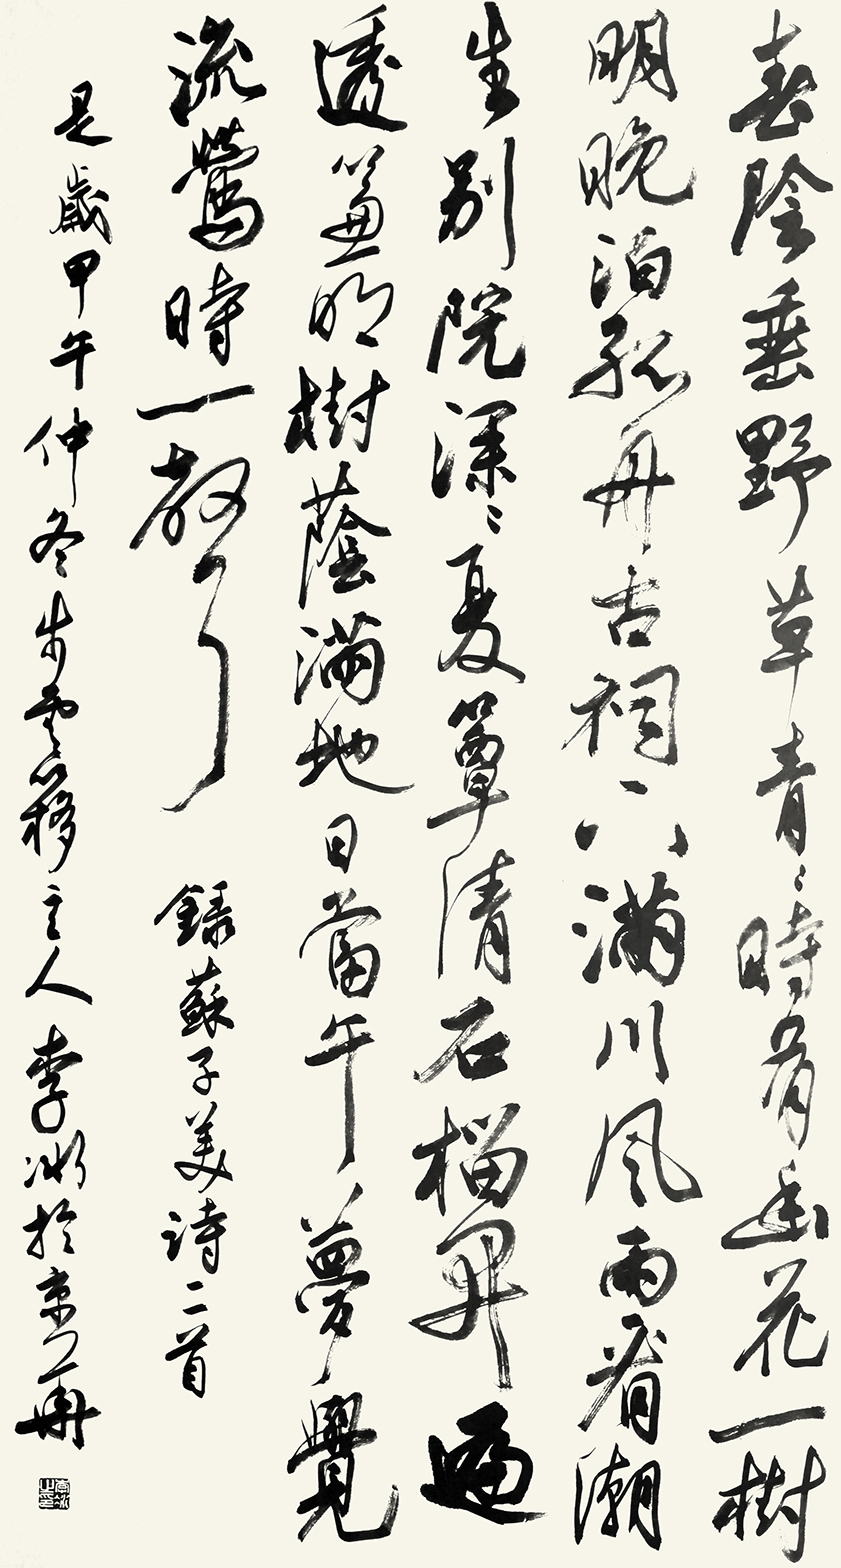 春陰垂野草青々時有幽花一樹
明晚泊孤舟古祠下滿川風雨看潮
生別院深々夏簟清石榴開遍
透簾明樹蔭滿地日當午夢覺
流鶯時一聲 錄蘇子美詩二首
是歲甲午仲冬步雲簃主人李冰於京華
李冰之印